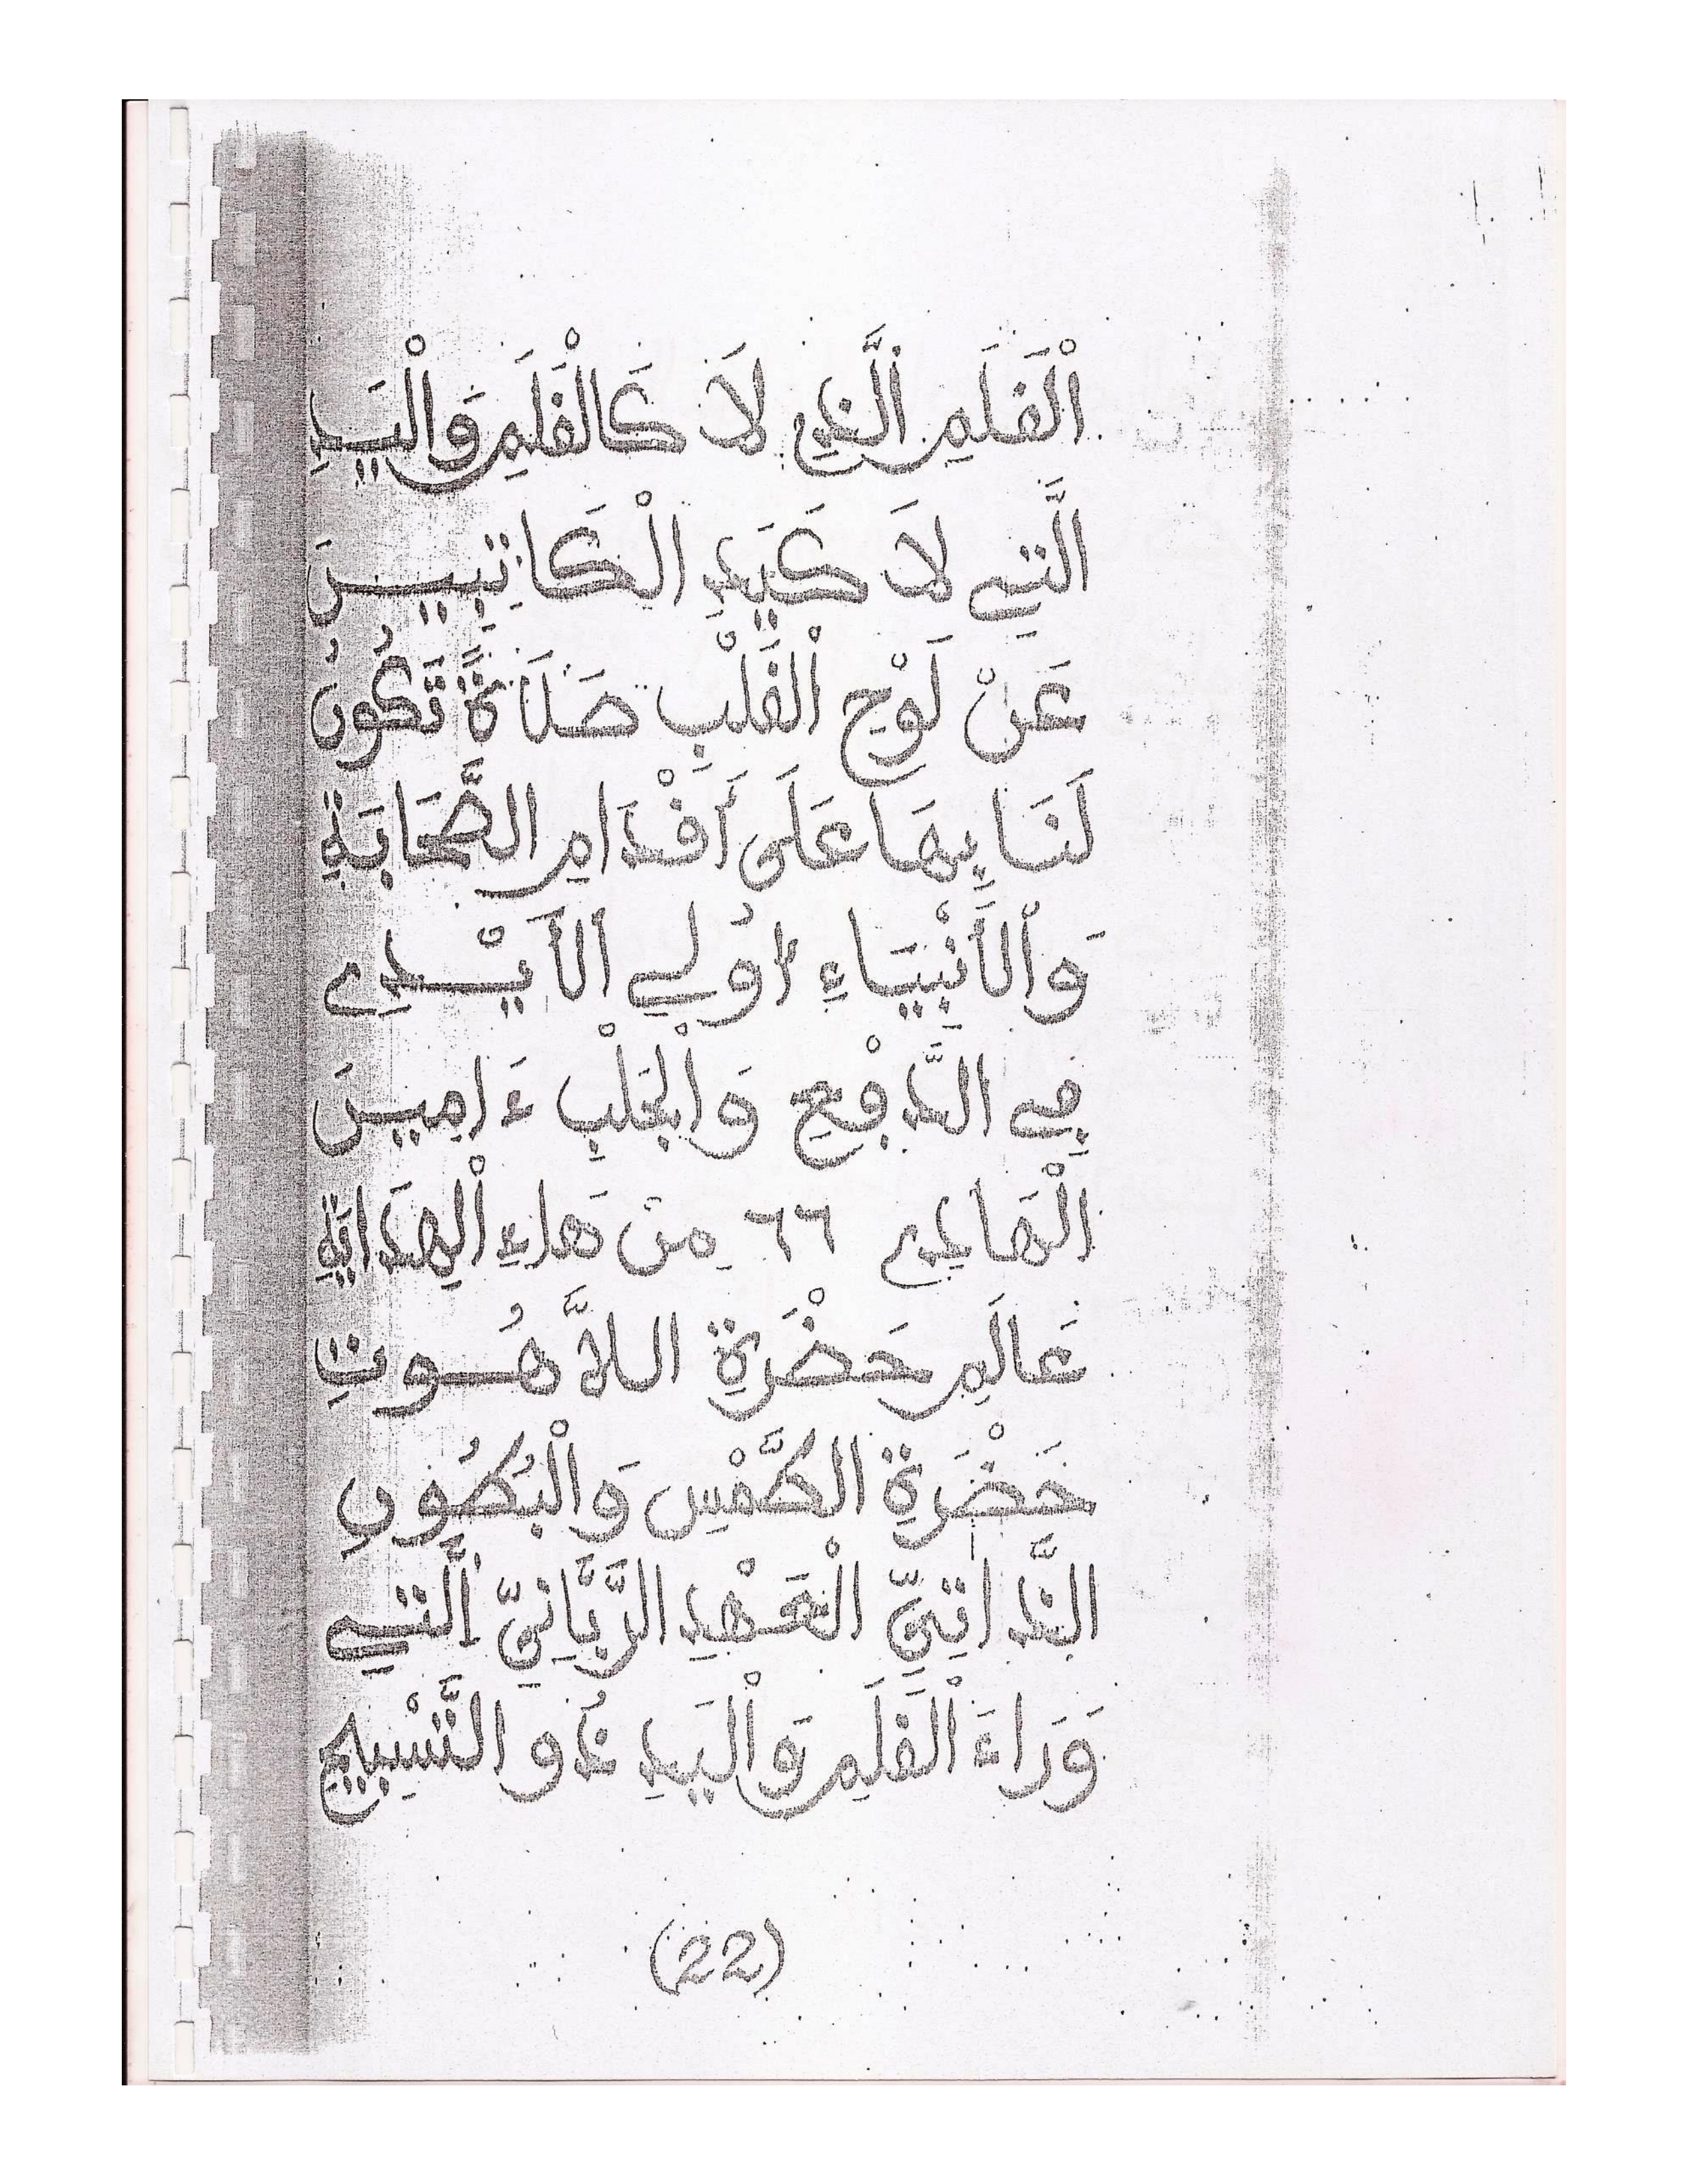 الْقَلَمِ الَّذِي لَا كَالْقَلَمِ وَالْيَدِ
الَّتِي لَا كَيَدِ الْكَاتِبِينَ
عَنْ لَوْحِ الْقَلْبِ صَلَاةً تَكُونُ
لَنَا بِهَا عَلَى أَقْدَامِ الصَّحَابَةِ
وَالْأَنْبِيَاءِ أُولِي الْأَيْدِي
فِي الدَّفْعِ وَالْجَلْبِ ءَامِينَ
٦٦ مِنْ هَاءِ الْهِدَايَةِ
عَالَمِ حَضْرَةِ اللَّاهُوتِ
حَضْرَةِ الطَّمْسِ وَالْبُطُونِ
الذَّاتِيِّ الْعَهْدِ الرَّبَّانِيِّ الَّتِي
وَرَاءَ الْقَلَمِ وَالْيَدِ ذُو التَّسْبِيحِ
(22)